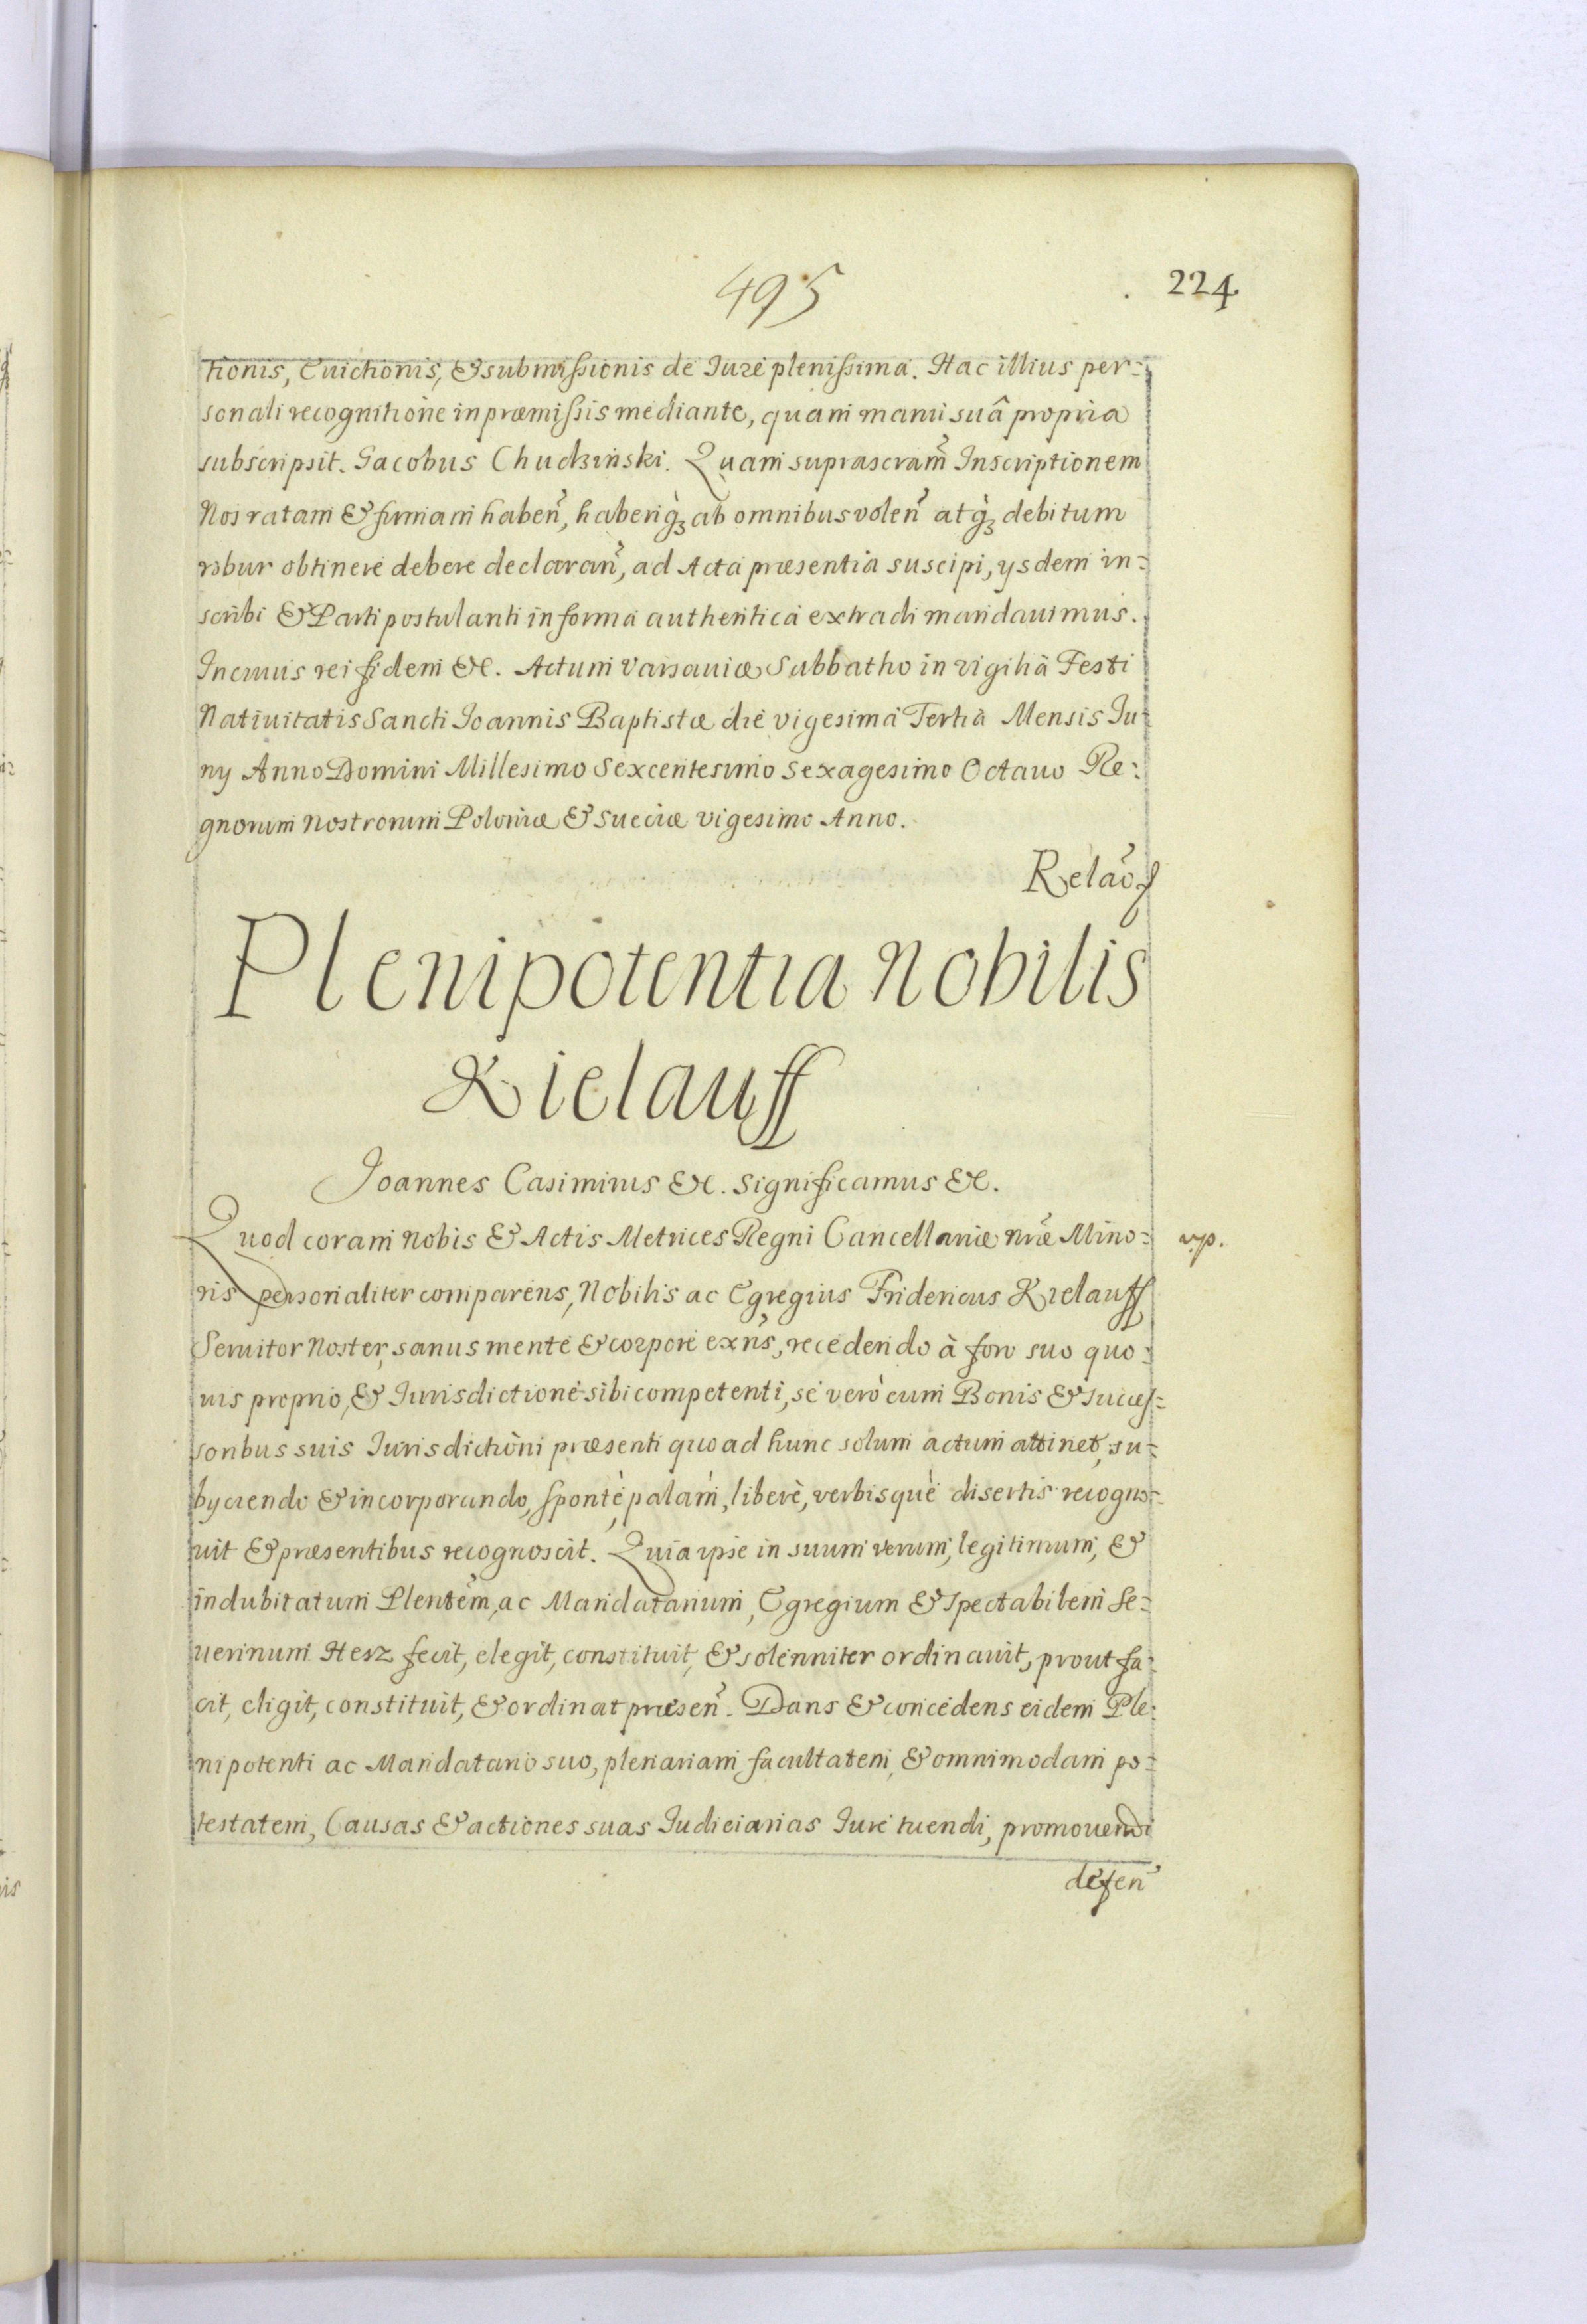 495
224
tionis, Euictionis, & submissionis de Iure plenissima. Hac illius per=
sonali recognitione in præmissis mediante, quam manu suâ propria
subscripsit. Jacobus Chudziński. Quam suprascram̃ Inscriptionem
Nos ratam & firmam haben̄, haberiq̀ꝫ ab omnibus volen̄ atq̀ꝫ debitum
robur obtinere debere declaran̄, ad Acta præsentia suscipi, ysdem in=
scribi & Parti postulanti in forma authentica extradi mandauimus.
In cuius rei fidem &c. Actum Varsauiæ Sabbatho in vigilia Festi
Natiuitatis Sancti Joannis Baptistæ die vigesima Tertia Mensis Ju=
ny Anno Domini Millesimo Sexcentesimo Sexagesimo Octauo Re=
gnorum Nostrorum Poloniæ & Sueciæ vigesimo Anno.
Relaõ
Plenipotentia Nobilis
Kielauff
Joannes Casimirus &c. Significamus &c.
Quod coram Nobis & Actis Metrices Regni Cancellariæ nr̃æ Mino=
ris personaliter comparens, Nobilis ac Egregius Fridericus Kielauff
Seruitor Noster, sanus mente & corpore exñs, recedendo à foro suo quo=
uis proprio, & Iurisdictione sibi competenti, se verò cum Bonis & succes=
soribus suis Iurisdictioni præsenti quo ad hunc solum actum attinet, su=
byciendo & incorporando, sponte, palam, liberè, verbisquè disertis recogno=
uit & præsentibus recognoscit. Quia ipse in suum verum, legitimum, &
indubitatum Plentẽm, ac Mandatarium, Egregium & Spectabilem Se=
uerinum Herz fecit, elegit, constituit, & solenniter ordinauit, prout fa=
cit, eligit, constituit, & ordinat præsen̄. Dans & concedens eidem Ple=
nipotenti ac Mandatario suo, plenariam facultatem, & omnimodam po=
testatem, Causas & actiones suas Iudiciarias Iure tuendi, promouendi
defen̄